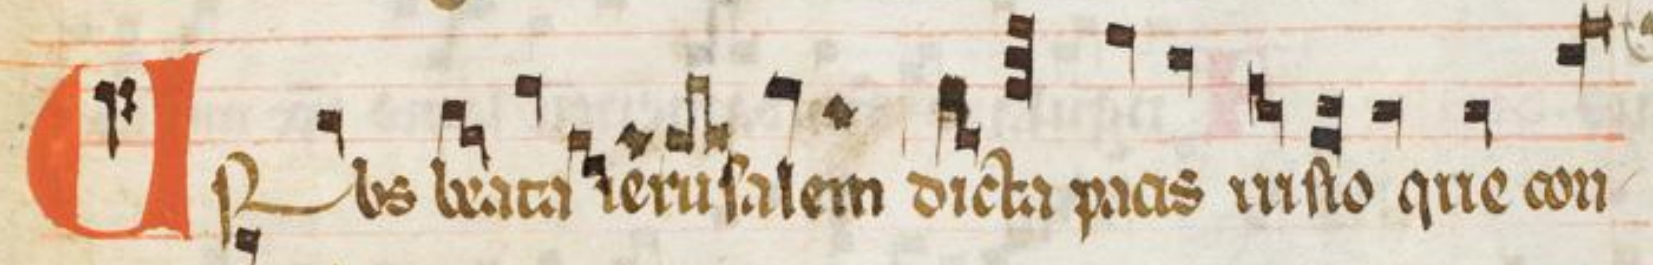 URbs beata ierusalem dicta pacis uisio que con